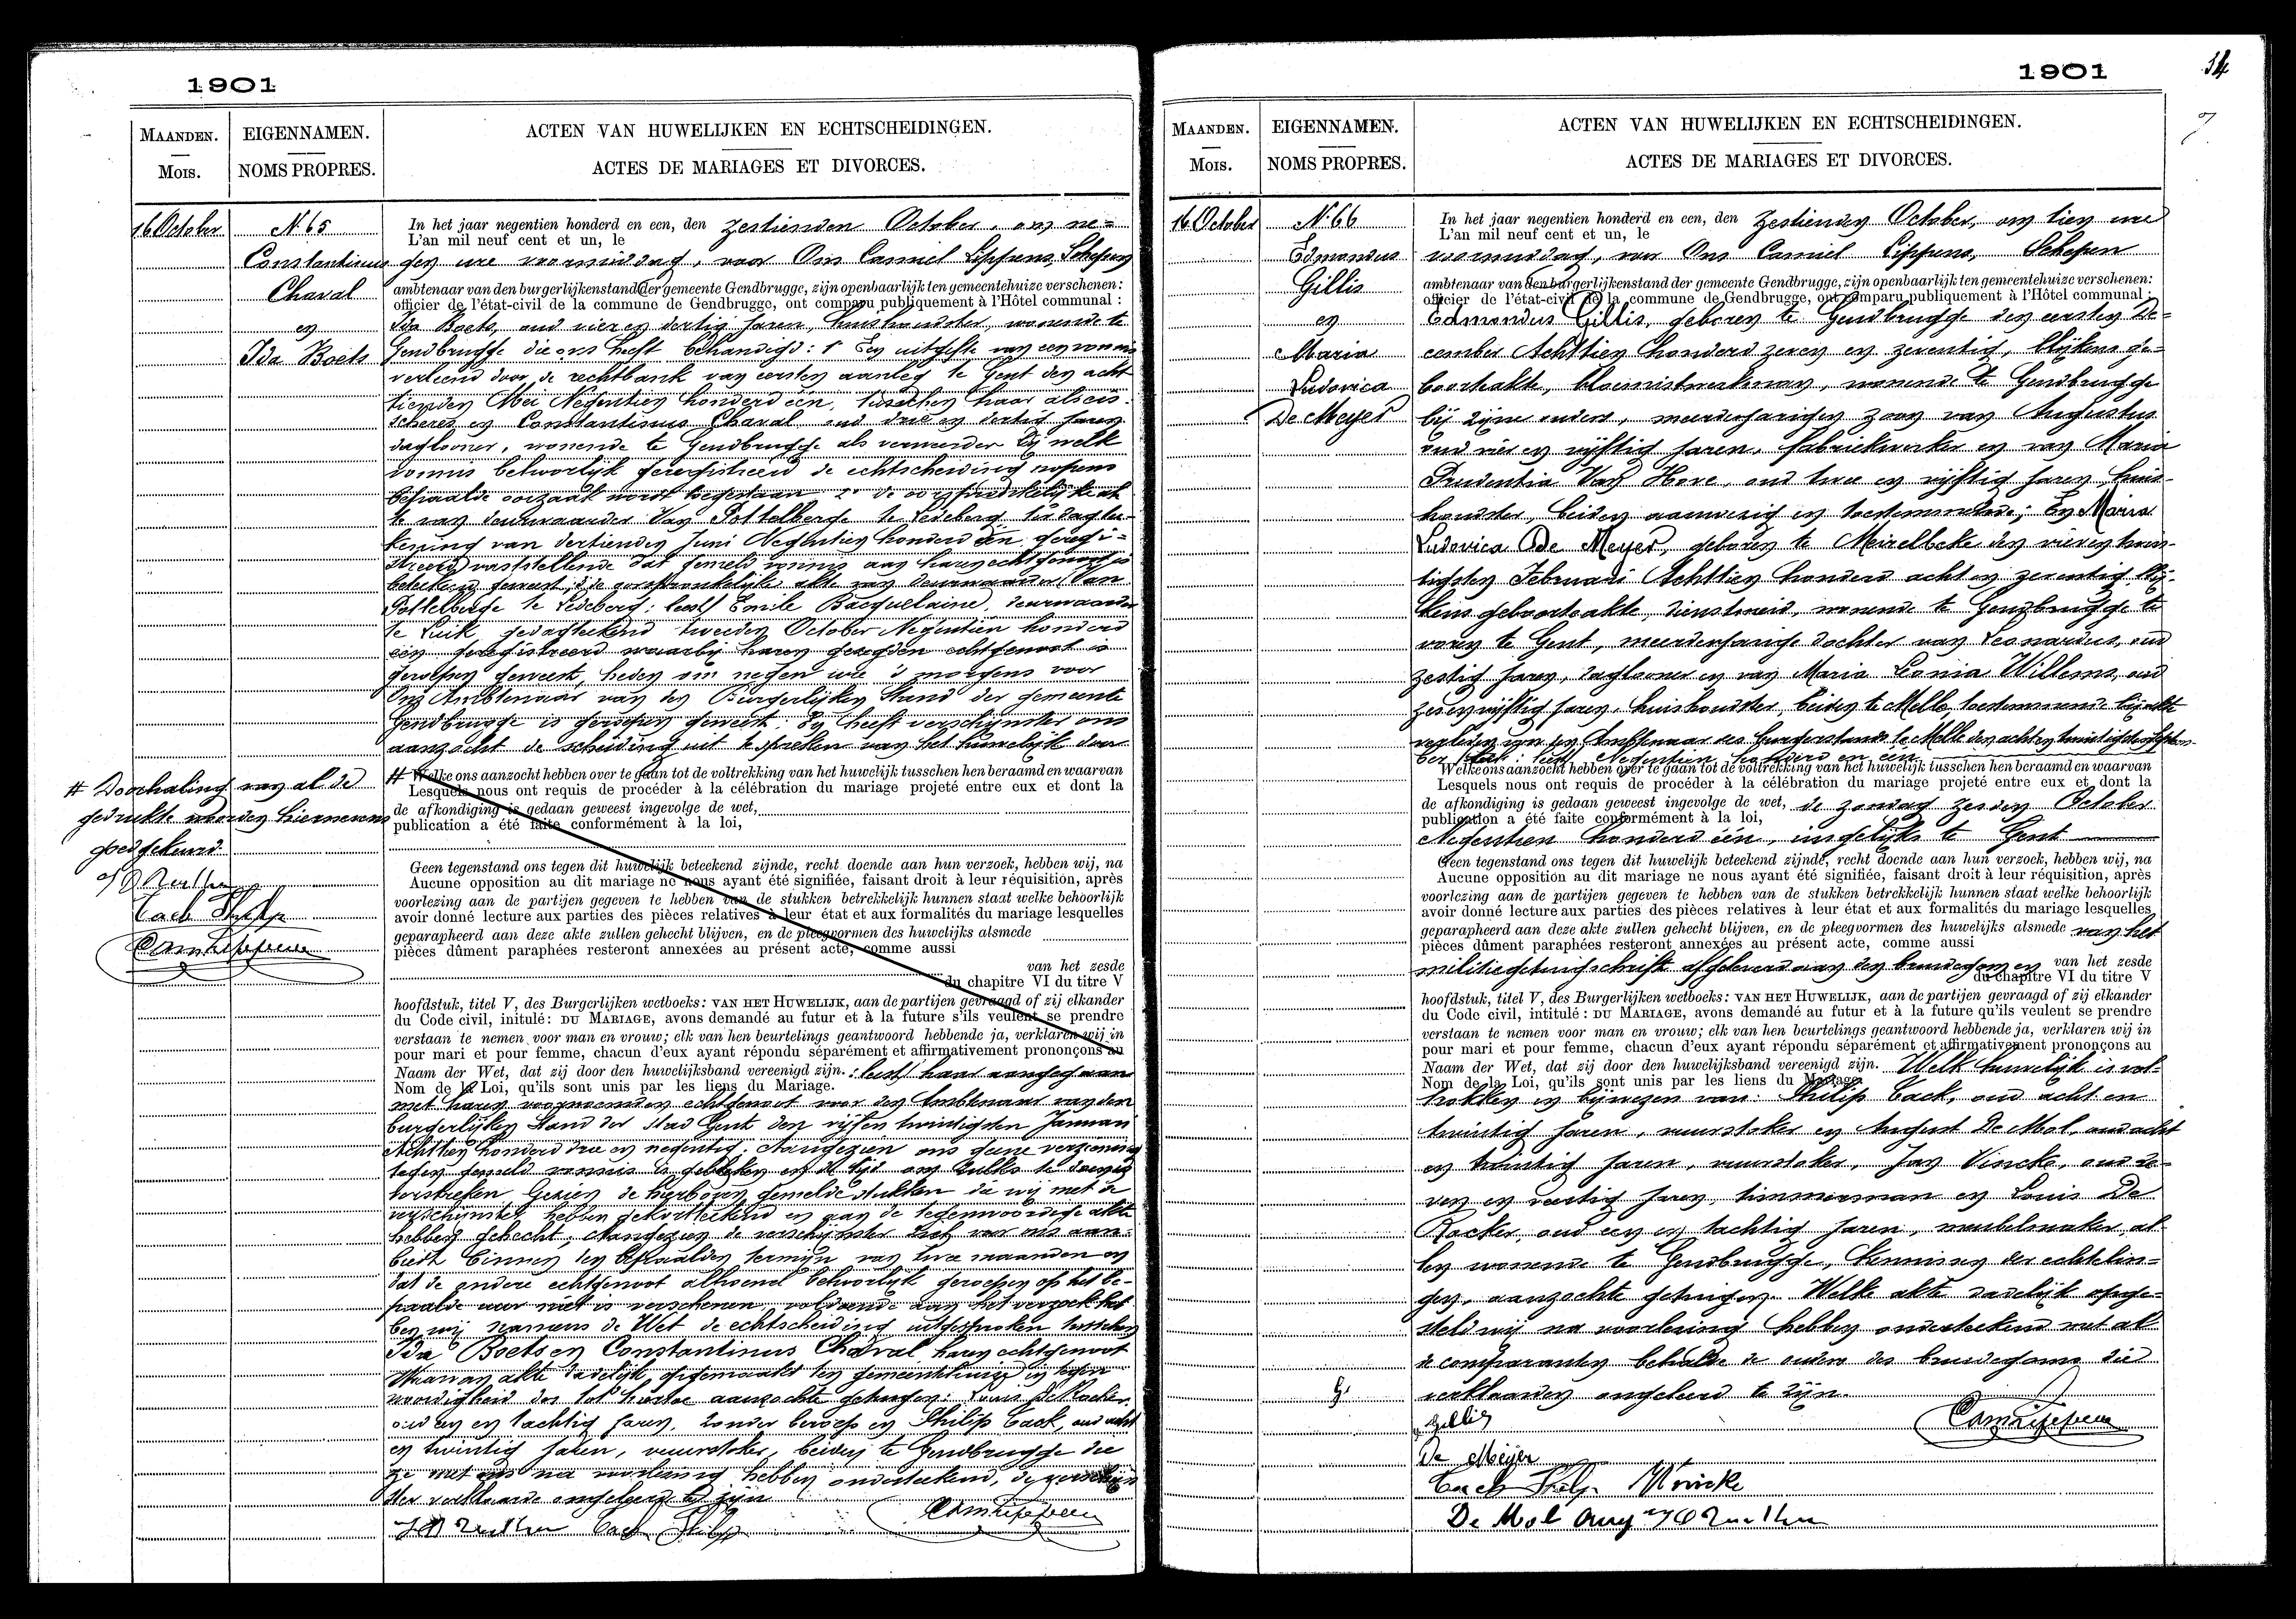 1901
MAANDEN.
Mois.
EIGENNAMEN.
NOMS PROPRES.
ACTEN VAN HUWELIJKEN EN ECHTSCHEIDINGEN.
ACTES DE MARIAGES ET DIVORCES.
16 October
N. 65
Constantinus
Chaval
en
Ida Boets
In het jaar negentien honderd en een, den zestienden October, om ne=
L'an mil neuf cent et un, le
gen ure voormiddag, voor Ons Camiel Lippens, Schepen
ambtenaar van den burgerlijkenstand der gemeente Gendbrugge, zijn openbaarlijk ten gemeentehuize verschenen:
officier de l'état-civil de la commune de Gendbrugge, ont comparu publiquement à l'Hôtel communal :
Ida Boets, oud vier en dertig jaren, huishoudster, wonende te
Gendbrugge die ons heeft behandigd: 1° Een uitgifte van een vonnis
verleend door de rechtbank van eersten aanleg te Gent den acht
tienden Mei Negentien honderd één, tusschen haar als eis-
scheres en Constantinus Chaval oud drie en dertig jaren
daglooner, wonende te Gendbrugge als verweerder bij welk
vonnis behoorlijk geregistreerd de echtscheiding nopens
bepaalde oorzaak wordt toegestaan 2° de oorspronkelijke ak
te van deurwaarder Van Pottelberge te Ledeberg ter dagtee-
kening van dertienden Juni Negentien honderd één, geregi=
streerd vaststellende dat gemeld vonnis aan haren echtgenoot is
beteekend geweest; 3° de oorspronkelijke akte van deurwaarder Van
Pottelberge te Ledeberg: leest Emile Bacquelaine, deurwaarder
te Luik, gedagteekend tweeden October Negentien honderd
één geregistreerd waarbij haren gezegden echtgenoot is
geroepen geweest, heden om negen ure 's morgens voor
Ons Ambtenaar van den Burgerlijken Stand der gemeente
Gendbrugge is geroepen geweest. En heeft verschijnster ons
aanzocht de scheiding uit te spreken van het huwelijk door
# Welke ons aanzocht hebben over te gaan tot de voltrekking van het huwelijk tusschen hen beraamd en waarvan
Lesquels nous ont requis de procéder à la célébration du mariage projeté entre eux et dont la
de afkondiging is gedaan geweest ingevolge de wet,
publication a été faite conformément à la loi,
Geen tegenstand ons tegen dit huwelijk beteekend zijnde, recht doende aan hun verzoek, hebben wij, na
Aucune opposition au dit mariage ne nous ayant été signifiée, faisant droit à leur réquisition, après
voorlezing aan de partijen gegeven te hebben van de stukken betrekkelijk hunnen staat welke behoorlijk
avoir donné lecture aux parties des pièces relatives à leur état et aux formalités du mariage lesquelles
geparapheerd aan deze akte zullen gehecht blijven, en de pleegvormen des huwelijks alsmede
pièces dûment paraphées resteront annexées au présent acte, comme aussi
van het zesde
du chapitre VI du titre V
hoofdstuk, titel V, des Burgerlijken wetboeks: VAN HET HUWELIJK, aan de partijen gevraagd of zij elkander
du Code civil, initulé: DU MARIAGE, avons demandé au futur et à la future s'ils veulent se prendre
verstaan te nemen voor man en vrouw; elk van hen beurtelings geantwoord hebbende ja, verklaren wij in
pour mari et pour femme, chacun d'eux ayant répondu séparément et affirmativement prononçons au
Naam der Wet, dat zij door den huwelijksband vereenigd zijn. : leest haar aangegaan
Nom de la Loi, qu'ils sont unis par les liens du Mariage.
met haren voornoemden echtgenoot voor den Ambtenaar van den
burgerlijken Stand der Stad Gent den vijfen twintigsten Januari
Achttien honderd drie en negentig. Aangezien ons geene verzoening
tegen gemeld vonnis is gebleken en de tijd om zulks te doen is
verstreken, Gezien de hierboven gemelde stukken die wij met de
verschijnster hebben gekorteekend en aan de tegenwoordige akte
hebben gehecht, Aangezien de verschijnster zich voor ons aan-
biedt binnen den bepaalden termijn van twee maanden en
dat de andere echtgenoot alhoewel behoorlijk geroepen op het be-
paalde uur niet is verschenen, voldoende aan het verzoek heb
ben wij namens de Wet de echtscheiding uitgesproken tusschen
Ida Boets en Constantinus Chaval haren echtgenoot
Waarvan akte dadelijk opgemaakt ten gemeentehuize in tegen
woordigheid der tot dezen aanzochte getuigen: Louis De Rocker
oud een en tachtig jaren, zonder beroep en Philip Cack, oud acht
en twintig jaren, vuurstoker, beiden te Gendbrugge die
ze met ons na voorlezing hebben onderteekend, de verschijn
ster verklaarde ongeleerd te zijn
Cack Philip
CamLippens
# Doorhaling van al de
gedrukte woorden hiernevens
goedgekeurd
Cack Philip
CamLippens
1901
34
7
MAANDEN.
Mois.
EIGENNAMEN.
NOMS PROPRES.
ACTEN VAN HUWELIJKEN EN ECHTSCHEIDINGEN.
ACTES DE MARIAGES ET DIVORCES.
16 October
N. 66
Edmondus
Gillis
en
Maria
Ludovica
De Meyer
In het jaar negentien honderd en een, den zestienden October, om tien ure
L'an mil neuf cent et un, le
voormiddag, voor Ons Camiel Lippens, Schepen
ambtenaar van den burgerlijkenstand der gemeente Gendbrugge, zijn openbaarlijk ten gemeentehuize verschenen:
officier de l'état-civil de la commune de Gendbrugge, ont comparu publiquement à l'Hôtel communal :
Edmondus Gillis, geboren te Gendbrugge den eersten De=
cember Achttien honderd zeven en zeventig, blijkens ge-
boorteakte, bloemistwerkman, wonende te Gendbrugge
bij zijne ouders, meerderjarigen zoon van Augustus
oud vier en vijftig jaren, fabriekwerker en van Maria
Prudentia Van Hove, oud twee en vijftig jaren, huis-
houdster, beiden aanwezig en toestemmende; En Maria
Ludovica De Meyer, geboren te Meirelbeke den vieren twin-
tigsten Februari Achttien honderd acht en zeventig blij-
kens geboorteakte, dienstmeid, wonende te Gendbrugge te
voren te Gent, meerderjarige dochter van Leonardus, oud
zestig jaren, daglooner en van Maria Lonia Willems, oud
zevenvijftig jaren, huishoudster, beiden te Melle, toestemmende bij akte
verleden voor den Ambtenaar des burgerstands te Melle den achtentwintigsten Septem
ber Negentien honderd en één
Welke ons aanzocht hebben over te gaan tot de voltrekking van het huwelijk tusschen hen beraamd en waarvan
Lesquels nous ont requis de procéder à la célébration du mariage projeté entre eux et dont la
de afkondiging is gedaan geweest ingevolge de wet, de zondag zesden October
publication a été faite conformément à la loi,
Negentien honderd één, insgelijks te Gent
Geen tegenstand ons tegen dit huwelijk beteekend zijnde, recht doende aan hun verzoek, hebben wij, na
Aucune opposition au dit mariage ne nous ayant été signifiée, faisant droit à leur réquisition, après
voorlezing aan de partijen gegeven te hebben van de stukken betrekkelijk hunnen staat welke behoorlijk
avoir donné lecture aux parties des pièces relatives à leur état et aux formalités du mariage lesquelles
geparapheerd aan deze akte zullen gehecht blijven, en de pleegvormen des huwelijks alsmede van het
pièces dûment paraphées resteront annexées au présent acte, comme aussi
militiegetuigschrift afgeleverd aan den bruidegom en van het zesde
du chapitre VI du titre V
hoofdstuk, titel V, des Burgerlijken wetboeks: VAN HET HUWELIJK, aan de partijen gevraagd of zij elkander
du Code civil, intitulé: DU MARIAGE, avons demandé au futur et à la future qu'ils veulent se prendre
verstaan te nemen voor man en vrouw; elk van hen beurtelings geantwoord hebbende ja, verklaren wij in
pour mari et pour femme, chacun d'eux ayant répondu séparément et affirmativement prononçons au
Naam der Wet, dat zij door den huwelijksband vereenigd zijn. Welk huwelijk is vol-
Nom de la Loi, qu'ils sont unis par les liens du Mariage.
trokken in bijwezen van: Philip Cack, oud acht en
twintig jaren, vuurstoker en August De Mol, oud acht
en twintig jaren, vuurstoker, Jan Vincke, oud ze-
ven en veertig jaren, timmerman en Louis De
Rocker, oud een en tachtig jaren, meubelmaker, al-
len wonende te Gendbrugge, kennissen der echtelin-
gen, aanzochte getuigen. Welke akte dadelijk opge-
steld wij na voorlezing hebben onderteekend met al
de comparanten behalve de ouders des bruidegoms die
verklaarden ongeleerd te zijn.
G.
Gillis
CamLippens
De Meyer
Cack Philip Vincke
De Mol Aug